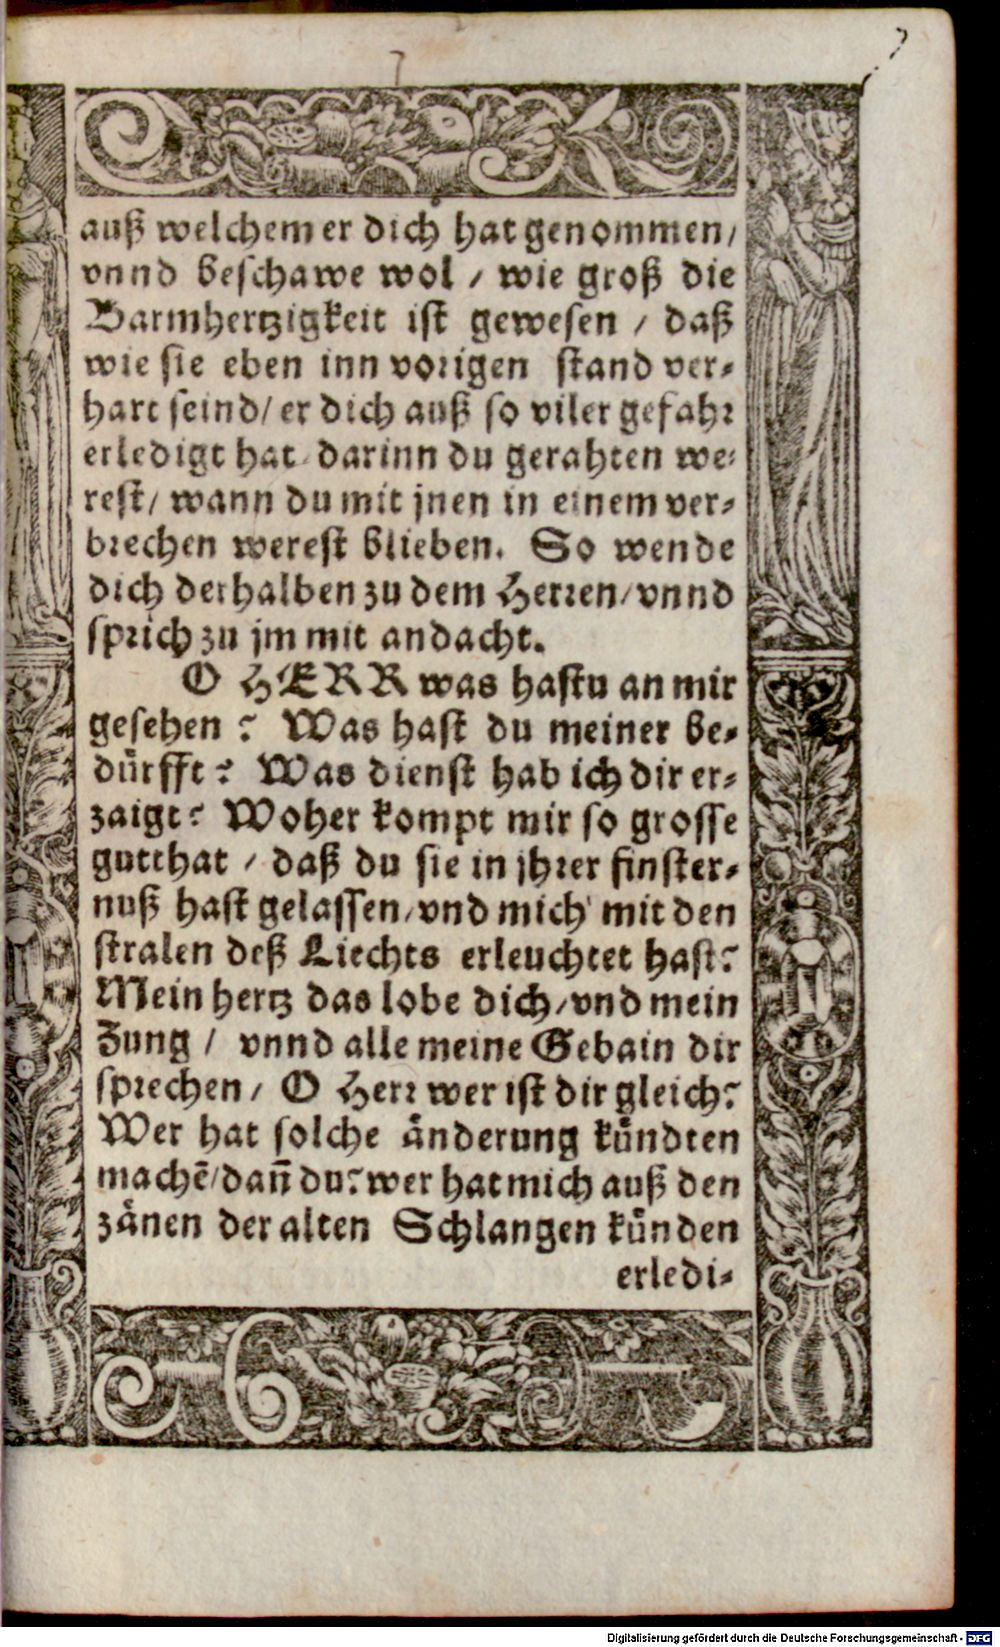 7
auß welchem er dich hat genommen/
vnnd beschawe wol / wie groß die
Barmhertzigkeit ist gewesen / daß
wie sie eben inn vorigen stand ver-
hart seind/ er dich auß so viler gefahr
erledigt hat darinn du gerahten we-
rest/ wann du mit jnen in einem ver-
brechen werest blieben. So wende
dich derhalben zu dem Herren/ vnnd
sprich zu jm mit andacht.
O HERR was hastu an mir
gesehen? Was hast du meiner be-
dürfft? Was dienst hab ich dir er-
zaigt? Woher kompt mir so grosse
gutthat / daß du sie in jhrer finster-
nuß hast gelassen/ vnd mich mit den
stralen deß Liechts erleuchtet hast?
Mein hertz das lobe dich/ vnd mein
Zung / vnnd alle meine Gebain dir
sprechen/ O Herr wer ist dir gleich?
Wer hat solche änderung kündten
machē/ dañ du? wer hat mich auß den
zänen der alten Schlangen künden
erledi-
Digitalisierung gefördert durch die Deutsche Forschungsgemeinschaft - DFG